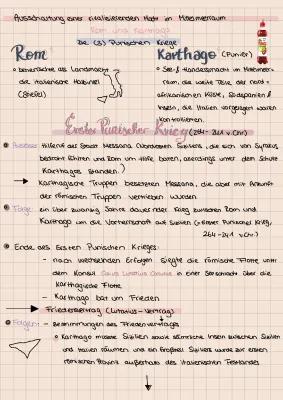 Ausschaltung einer rivalisierenden Macht im Mittelmeerraum
Rom und Karthago
Die (3) Punischen Kriege
Rom
Karthago (Punier)
beherrschte als Landmacht
die italische Halbinsel
(Stiefel)
See- & Handelsmacht im Mittelmeer-
raum, die weite Teile der nord-
afrikanischen Küste, Südspanien &
Inseln, die Italien vorgelagert waren
kontrollieren.
Erster Punischer Krieg (264-241 v.Chr)
Auslöser: Hilferuf der Stadt Messana (Nordosten Siziliens, die sich von Syrakus
bedroht fühlten und Rom um Hilfe baten, allerdings unter dem Schutz
Karthagos standen.)
→ Karthagische Truppen besetzten Messana, die aber mit Ankunft
der römischen Truppen vertrieben wurden
Folge: ein über zwanzig Jahre dauernder Krieg zwischen Rom und
Karthago um die Vorherrschaft auf Sizilien (= Erster Punischer Krieg,
264-241 v.Chr.)
Ende des Ersten Punischen Krieges:
- nach wechselnden Erfolgen siegte die römische Flotte unter
dem Konsul Gaius Lutatius Catulus in einer Seeschlacht über die
Karthagische Flotte
- Karthago bat um Frieden
→ Friedensvertrag (Lutatius-Vertrag)
Folgen: - Bestimmungen des Friedensvertrages
Karthago musste Sizilien sowie sämtliche Inseln zwischen Sizilien
und Italien räumen und ein Großteil Siziliens wurde zur ersten
römischen Provinz außerhalb des italienischen Festlandes